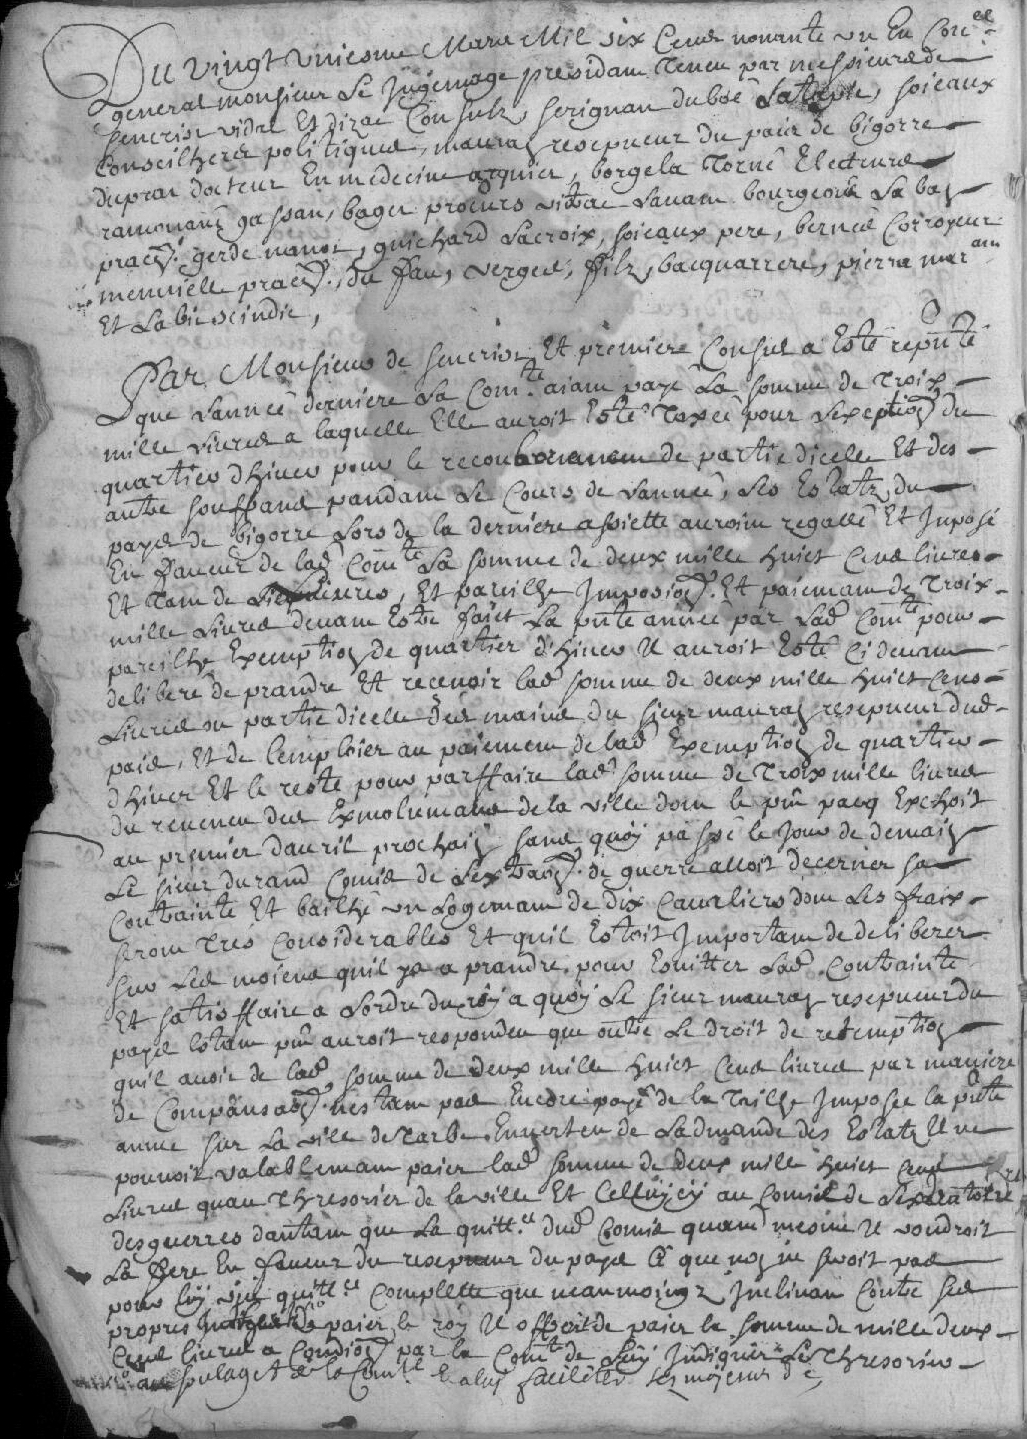 Du vingt uniesme Mars Mil six Cens nonante un En Con^el
general monsieur Le Jugemage presidant Tenu par messieurs de
Senerioz vidal Et dirac Consulz, serignan duboé Lataple, soieaux
Conseilhers politiques, mauraz resepueur du pais de bigorre
duprat docteur En medecine arquier, borgela Torné Electeurs
ramonané gassan, bager procurs vitrac Lanam bourgeois La baz
prac^. gerde manot, guichard Lacroix, soieaux pere, berneé Corroyeur
menvielle prac^., du ffau, verges, ffilz, bacquarrere, pierre mar
Et Labie scindic,
Par Monsieur de Senerioz Et premiere Consul a Esté repnté
que Lannee derniere La Com^te aiant payé La somme de Troix
mille Livres a laquelle Elle auroit Esté Taxeé pour Lexeption du
quartier dhiver pour le recouvrement de partie dicelle Et des
autre souffrans pandant Le Cours de Lanneé, Les Estatz du
pays de bigorre Lors de la derniere assiette auroint regallé Et Imposé
En ffaveur de lad Com^te La somme de deux mille huict Cens livres
Et Tant de Livres, Et pareilhe Imposion. Et paiemant de Troix
mille Livres devant Estre faict La pnte anneé par Lad Com^te pour
pareilhe Exemption de quartier dhiver Il auroit Esté Cidevant
deliberé de prandre Et recevoir lad somme de deux mille huict Cens
Livres ou partie dicelle des mains du sieur mauraz resepueur dud
pais, Et de Lemploier au paiement de lad Exemption de quartier
dhiver Et le reste pour parffaire lad somme de Troix mille livres
du revenu des Exmolumans de la ville dont le pnt pacq Exchoit
au premier dauril prochain sans quoy passé le Jour de demain
Le sieur durand Comis de Lextraon. de guerre alloit decerner sa
Contrainte Et bailhe un Logemant de dix Cavaliers dont Les fraix
seront Tres Considerables Et quil Estoit Important de deliberer
sur Les moiens quil ya a prandre pour Evitter Lad Contrainte
Et satisffaire a Lordre du roy a quoy Le sieur mauraz resepueur du
pays Estant pnt auroit respondeu que outre Le droit de redemption
quil avoit de lad somme de deux mille huict Cens livres par maniere
de Compansaon. nestant pas Encore payé de la Tailhe Imposeé la pnte
annee sur La ville de Tarbe Enverteu de Ladmande des Estatz Il ne
pouvoit valablemant paier lad somme de deux mille huict Cens
Livres quau Thresorier de la ville Et Celluycy au Comis de Lexdratoire
des guerres dautant que La quitt^ce dud Comis quand mesme Il voudroit
La ffere En ffaveur du resepueur du pays Ce que noz ne seroit pas
pour luy une quitt^ce Complette que neanmoingz Inclinant Contre ses
propres Interests de paier le roy Il offroit de paier la somme de mille deux
Cens livres a Condion par la Com^te de Luy Indiquer Le Thresorier
au soulaget de la Com^te Et alus faciliter les moiens de